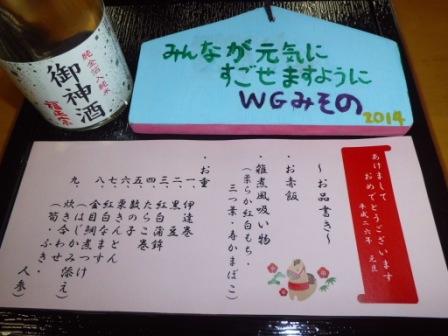 純金箔入純米
御神酒
みんなが元気に
すごせますように
WGみその
2014
あけまして
おめでとうございます
平成二六年 元旦
～お品書き～
・お赤飯
・雑煮風吸い物
(柔らか紅白もち・
三つ葉・寿かまぼこ)
・お重
一、伊達巻
二、黒豆
三、紅白蒲鉾
四、たらこ巻
五、数の子
六、栗きんとん
七、紅白なます
八、金目鯛煮つけ
(はじかみ添え)
九、炊き合わせ
(筍・ふき・
人参)